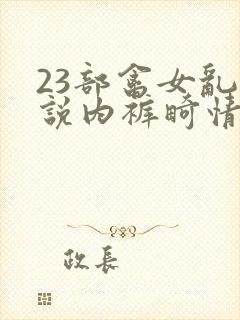 23部畲女亂
說内裤畸情
政長